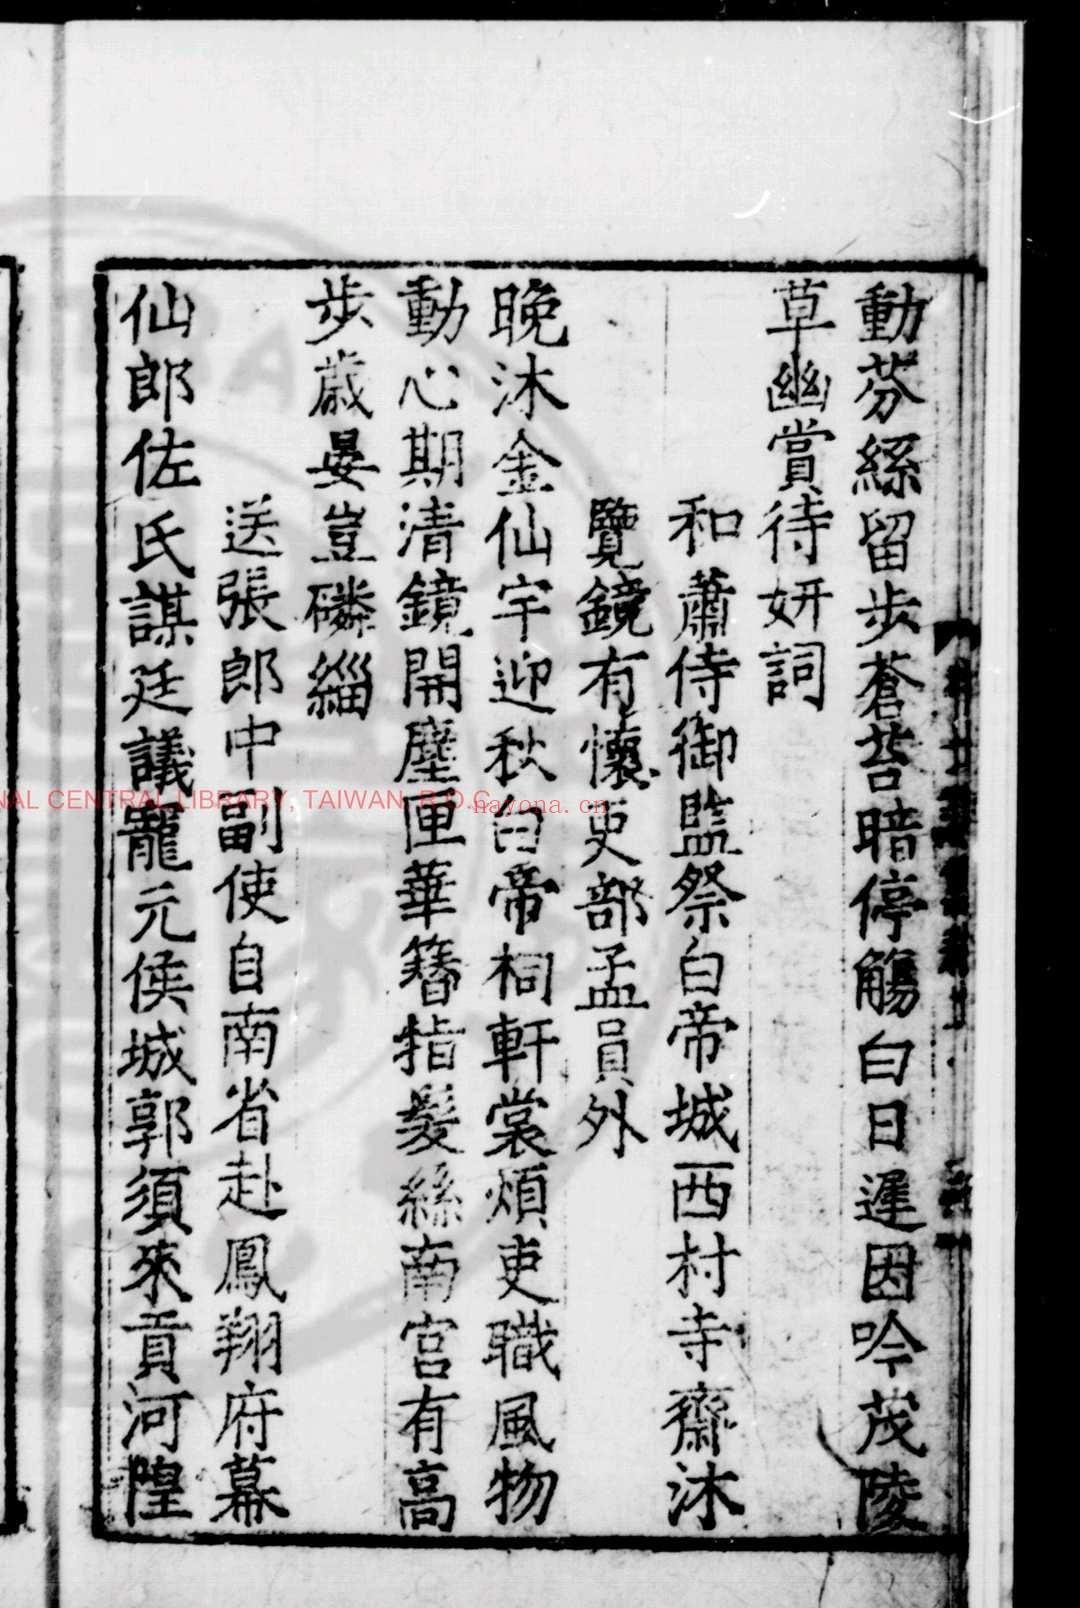 動芬絲留步蒼苔暗停觴白日遲因吟茂陵
草幽賞待妍詞
和蕭侍御監祭白帝城西村寺齋沐
覽鏡有懷吏部孟員外
晚沐金仙宇迎秋白帝祠軒裳煩吏職風物
動心期清鏡開塵匣華簪指髮絲南宮有高
步歲晏豈磷緇
送張郎中副使自南省赴鳳翔府幕
仙郎佐氏謀廷議寵元侯城郭須來貢河隍
NAL CENTRAL LIBRARY, TAIWAN, R.O.C
nayona.cn